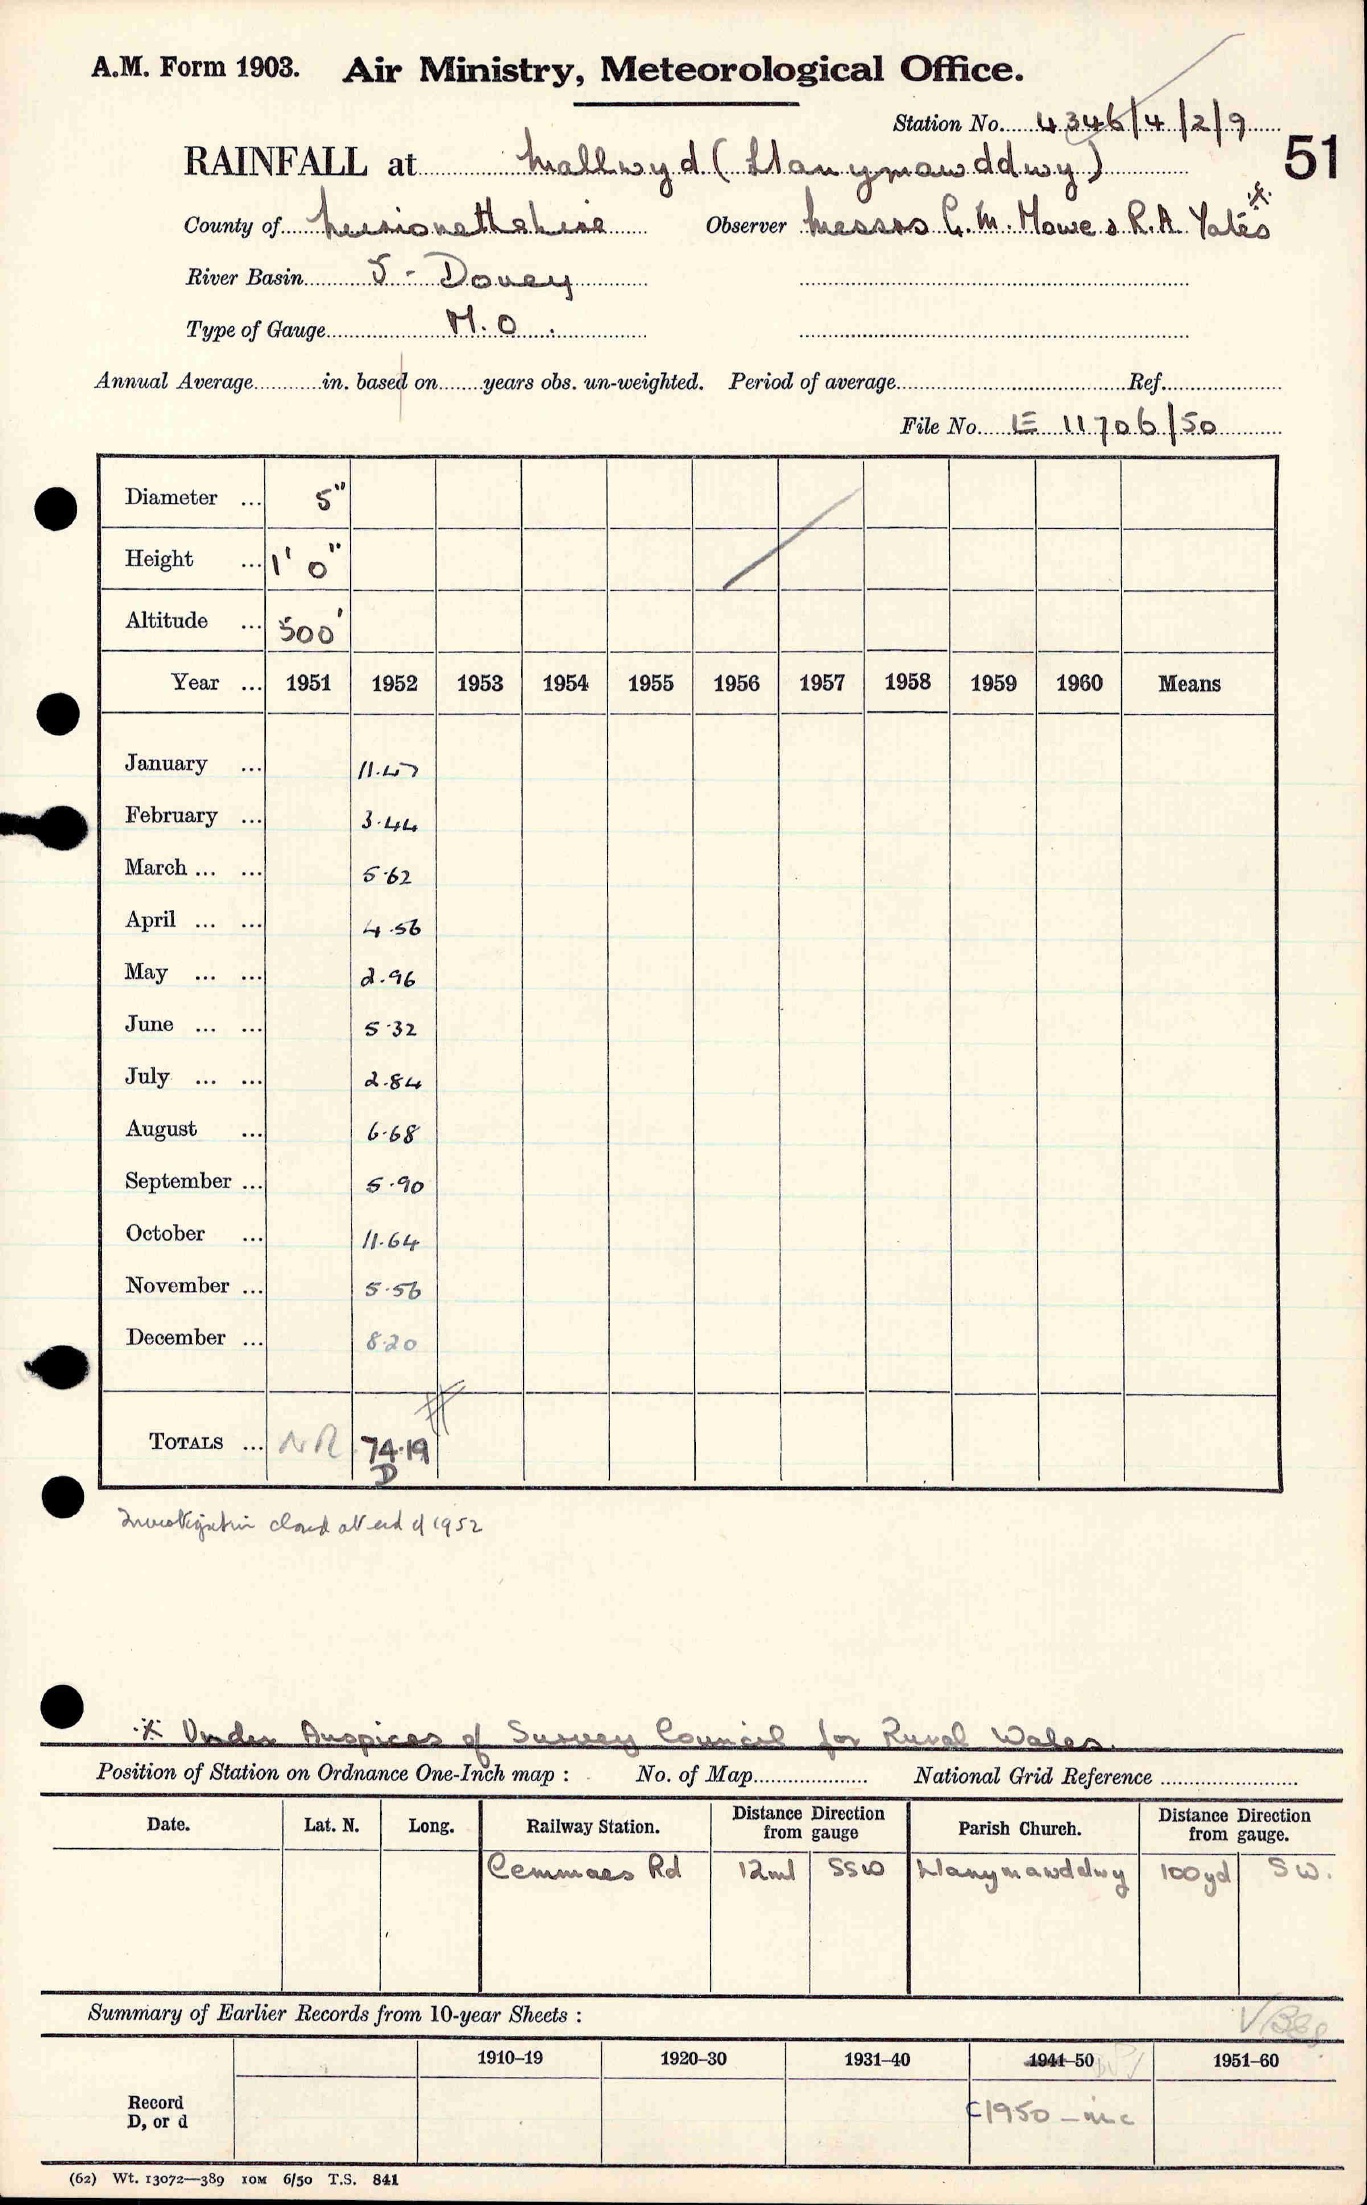 A.M. Form 1903. Air Ministry, Meteorological Office.
Station No. 4346/4/2/9
51
RAINFALL at Mallwyd (Llanymawddwy)
County of Merionethshire Observer Messrs G.M. Howe & R.A. Yates *
River Basin 5 - Dovey
Type of Gauge M.O.
Annual Average in. based on years obs. un-weighted. Period of average Ref.
File No. E 11706/50
Diameter ... 5"
Height ... 1' 0"
Altitude ... 500'
Year ... 1951 1952 1953 1954 1955 1956 1957 1958 1959 1960 Means
January ... 11.47
February ... 3.44
March ... ... 5.62
April ... ... 4.56
May ... ... 2.96
June ... ... 5.32
July ... ... 2.84
August ... 6.68
September ... 5.90
October ... 11.64
November ... 5.56
December ... 8.20
TOTALS ... NR 74.19
D
Investigation closed at end of 1952
* Under Auspices of Survey Council for Rural Wales.
Position of Station on Ordnance One-Inch map : No. of Map National Grid Reference
Date. Lat. N. Long. Railway Station. Distance Direction from gauge Parish Church. Distance Direction from gauge.
Cemmaes Rd 12ml SSW Llanymawddwy 100yd SW.
Summary of Earlier Records from 10-year Sheets :
1910–19 1920–30 1931–40 1941–50 1951–60
Record
D, or d
C1950 - inc
(62) Wt. 13072—389 10M 6/50 T.S. 841